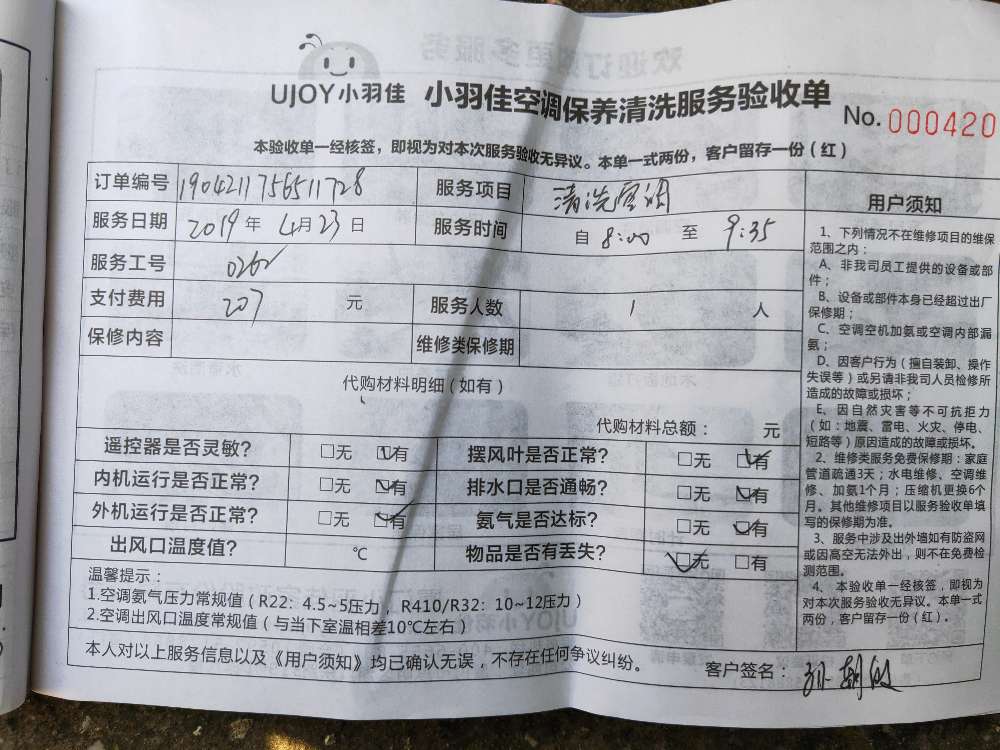 UJOY小羽佳 小羽佳空调保养清洗服务验收单
No. 000420
本验收单一经核签，即视为对本次服务验收无异议。本单一式两份，客户留存一份（红）
订单编号 1904211756511728 服务项目 清洗空调
服务日期 2019年 4月 23日 服务时间 自 8:00 至 9:35
服务工号 0262
支付费用 207 元 服务人数 1 人
保修内容 维修类保修期
代购材料明细（如有）
代购材料总额： 元
遥控器是否灵敏? □无 ☑有 摆风叶是否正常? □无 ☑有
内机运行是否正常? □无 ☑有 排水口是否通畅? □无 ☑有
外机运行是否正常? □无 ☑有 氨气是否达标? □无 ☑有
出风口温度值? ℃ 物品是否有丢失? ☑无 □有
温馨提示：
1.空调氨气压力常规值（R22：4.5~5压力，R410/R32：10~12压力）
2.空调出风口温度常规值（与当下室温相差10℃左右）
本人对以上服务信息以及《用户须知》均已确认无误，不存在任何争议纠纷。
客户签名：
用户须知
1、下列情况不在维修项目的维保
范围之内：
A、非我司员工提供的设备或部
件；
B、设备或部件本身已经超过出厂
保修期；
C、空调空机加氨或空调内部漏
氨；
D、因客户行为（擅自装卸、操作
失误等）或另请非我司人员检修所
造成的故障或损坏；
E、因自然灾害等不可抗拒力
（如：地震、雷电、火灾、停电、
短路等）原因造成的故障或损坏。
2、维修类服务免费保修期：家庭
管道疏通3天；水电维修、空调维
修、加氨1个月；压缩机更换6个
月。其他维修项目以服务验收单填
写的保修期为准。
3、服务中涉及出外墙如有防盗网
或因高空无法外出，则不在免费检
测范围。
4、本验收单一经核签，即视为
对本次服务验收无异议。本单一式
两份，客户留存一份（红）。